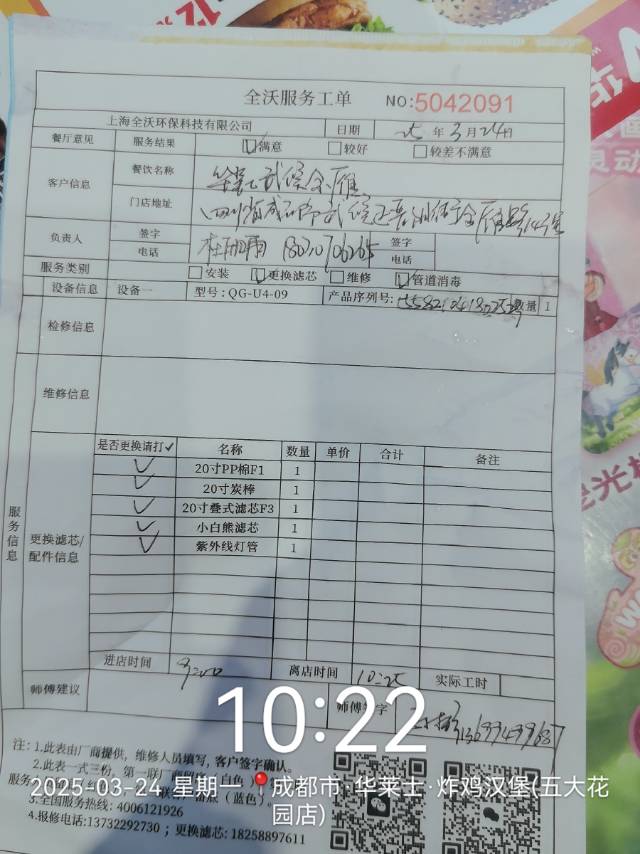 全沃服务工单 NO:5042091
上海全沃环保科技有限公司 日期 25 年 3 月 24 日
餐厅意见 服务结果 满意 较好 较差不满意
客户信息 餐饮名称 华莱士武侯金雁
门店地址 四川省成都市武侯区
负责人 签字 签字
电话 电话
服务类别 安装 更换滤芯 维修 管道消毒
设备信息 设备一 型号: QG-U4-09 产品序列号: 数量 1
检修信息
维修信息
服务信息
更换滤芯/配件信息
是否更换请打✓ 名称 数量 单价 合计 备注
✓ 20寸PP棉F1 1
✓ 20寸炭棒 1
✓ 20寸叠式滤芯F3 1
✓ 小白熊滤芯 1
✓ 紫外线灯管 1
进店时间 9:00 离店时间 10:25 实际工时
师傅建议 师傅签字
10:22
注: 1.此表由厂商提供，维修人员填写，客户签字确认。
2.此表一式三份，第一联厂商
2025-03-24 星期一 成都市·华莱士·炸鸡汉堡(五大花园店)
3.全国服务热线: 4006121926
4.报修电话:13732292730 ; 更换滤芯: 18258897611